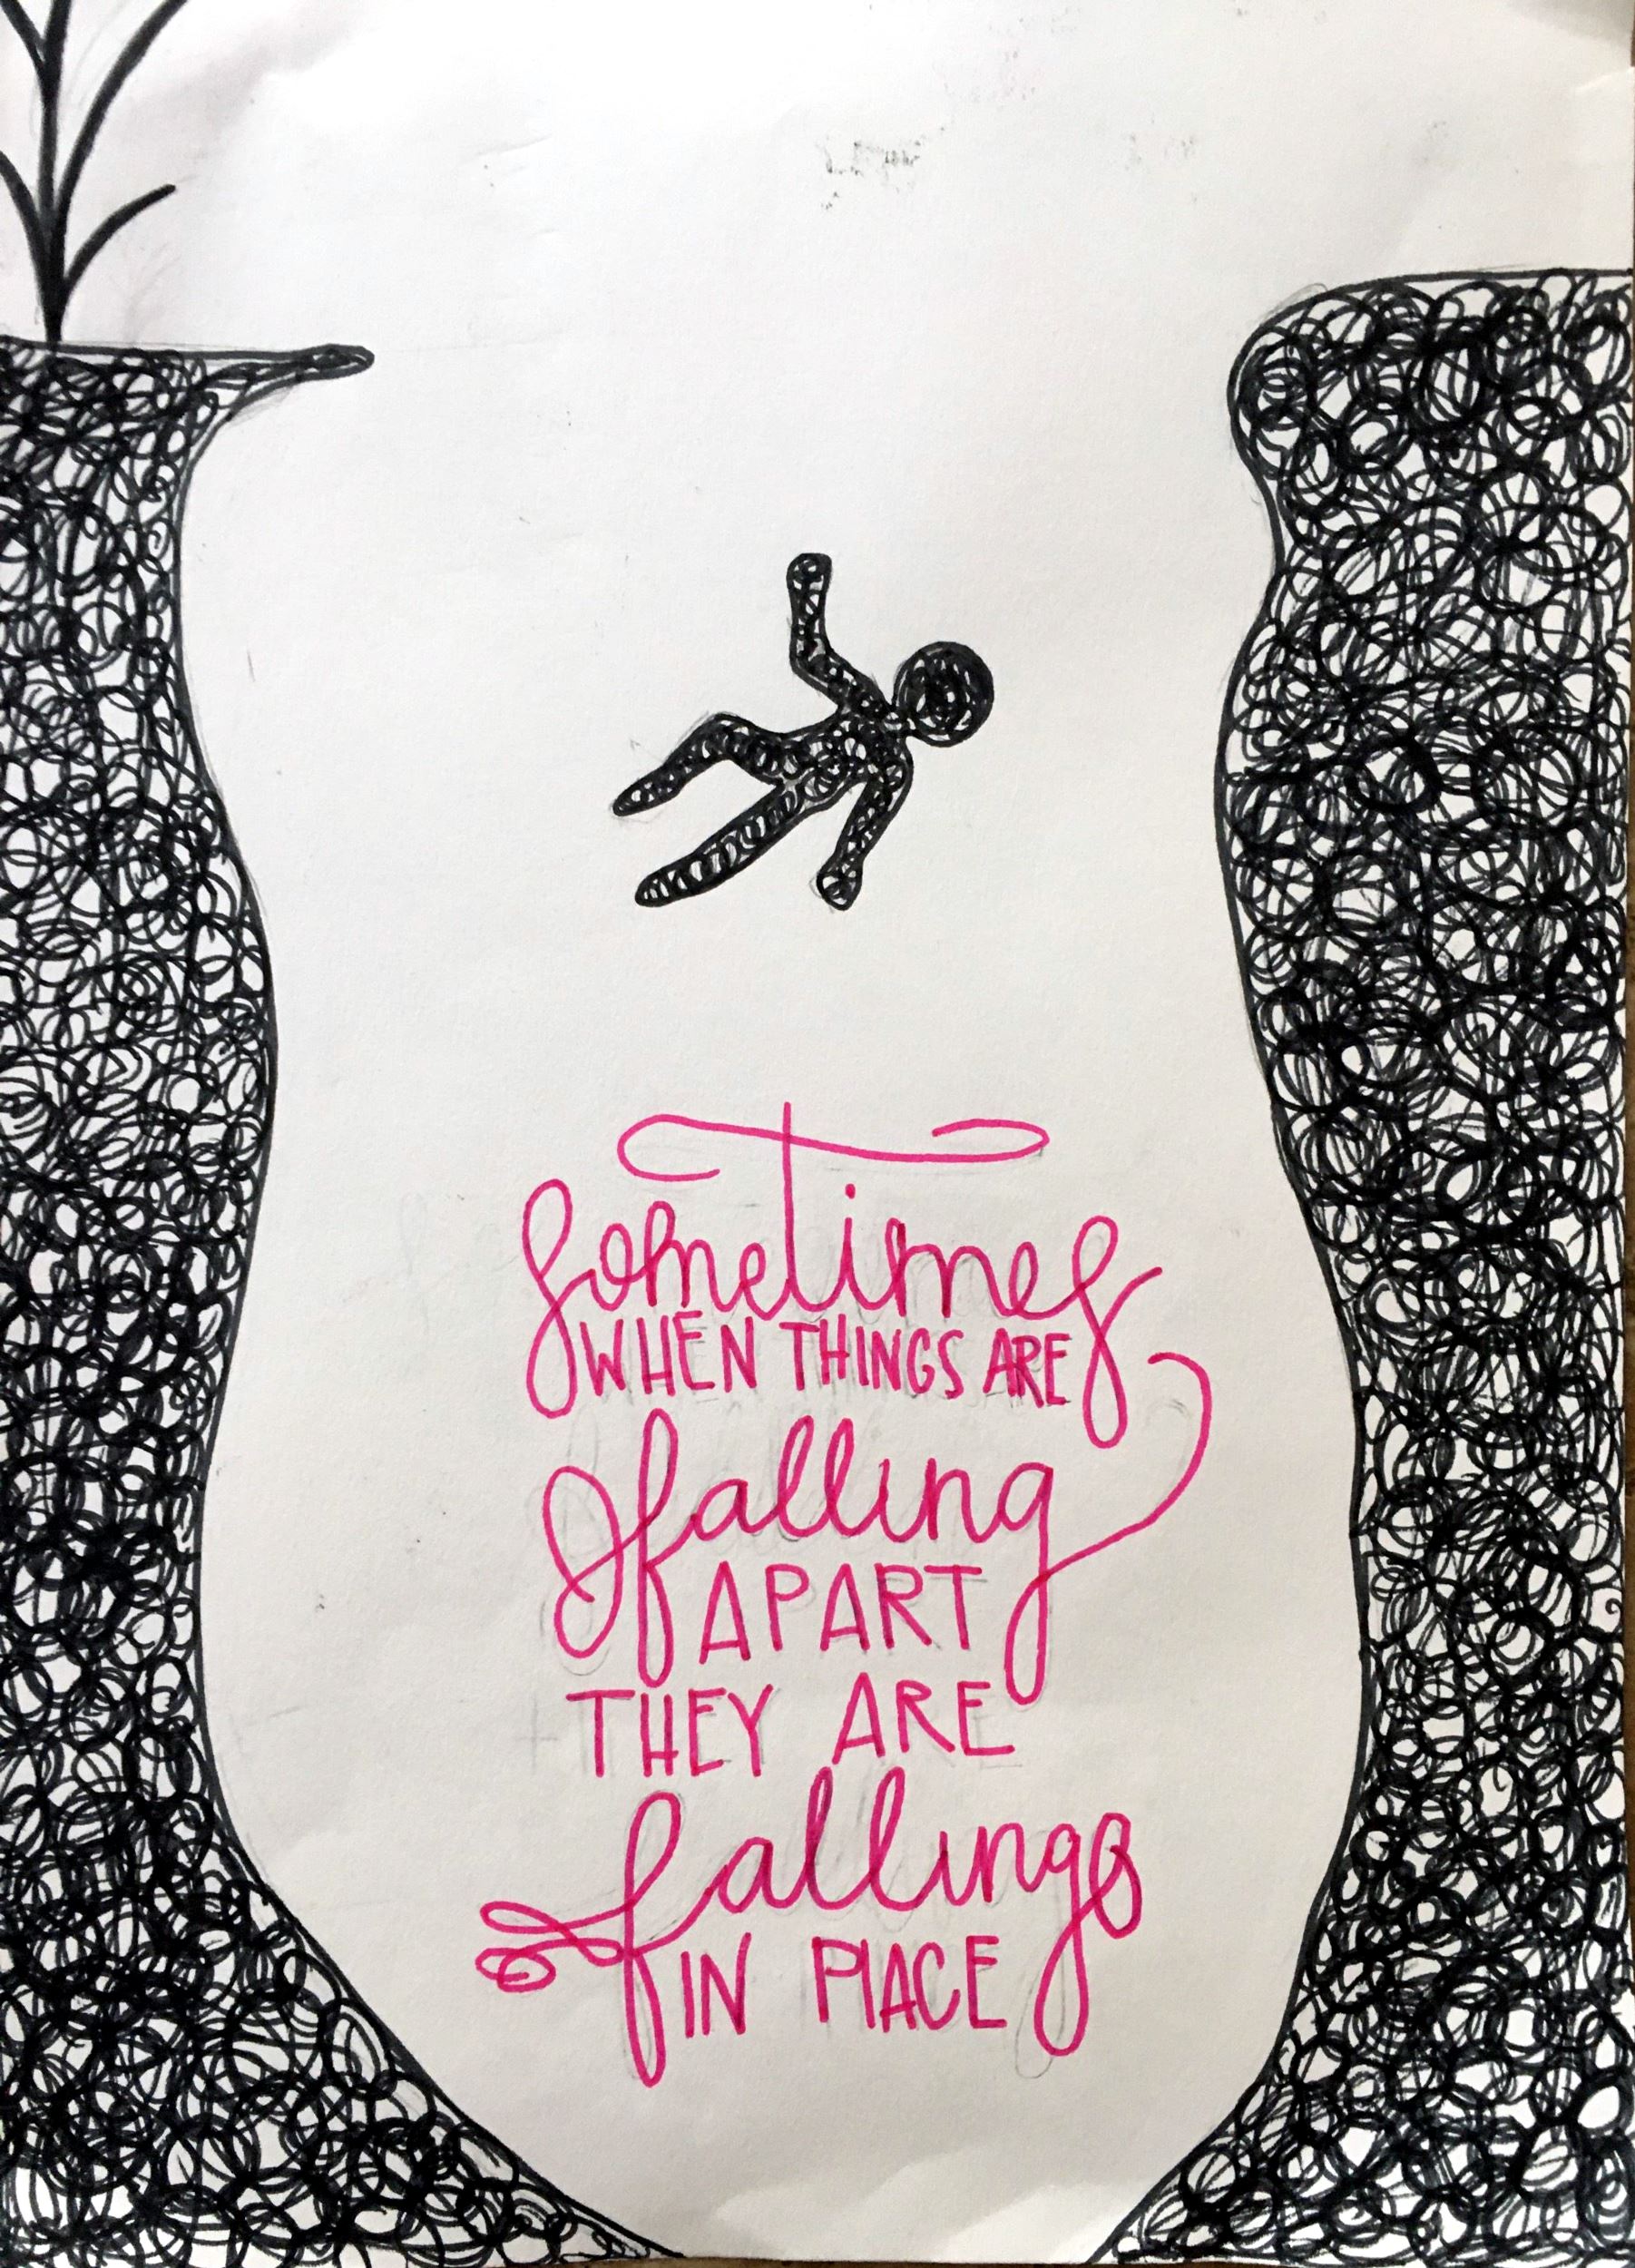 sometimes
WHEN THINGS ARE
falling
APART
THEY ARE
falling
IN PLACE